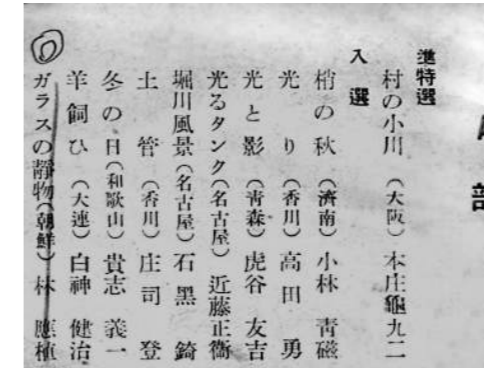 部
準特選
村の小川(大阪)本庄龜九二
入選
梢の秋(濟南)小林靑磁
光り(香川)高田勇
光と影(靑森)虎谷友吉
光るタンク(名古屋)近藤正衞
堀川風景(名古屋)石黑錡
土管(香川)庄司登
冬の日(和歌山)貴志義一
羊飼ひ(大連)白神健治
ガラスの靜物(朝鮮)林應植